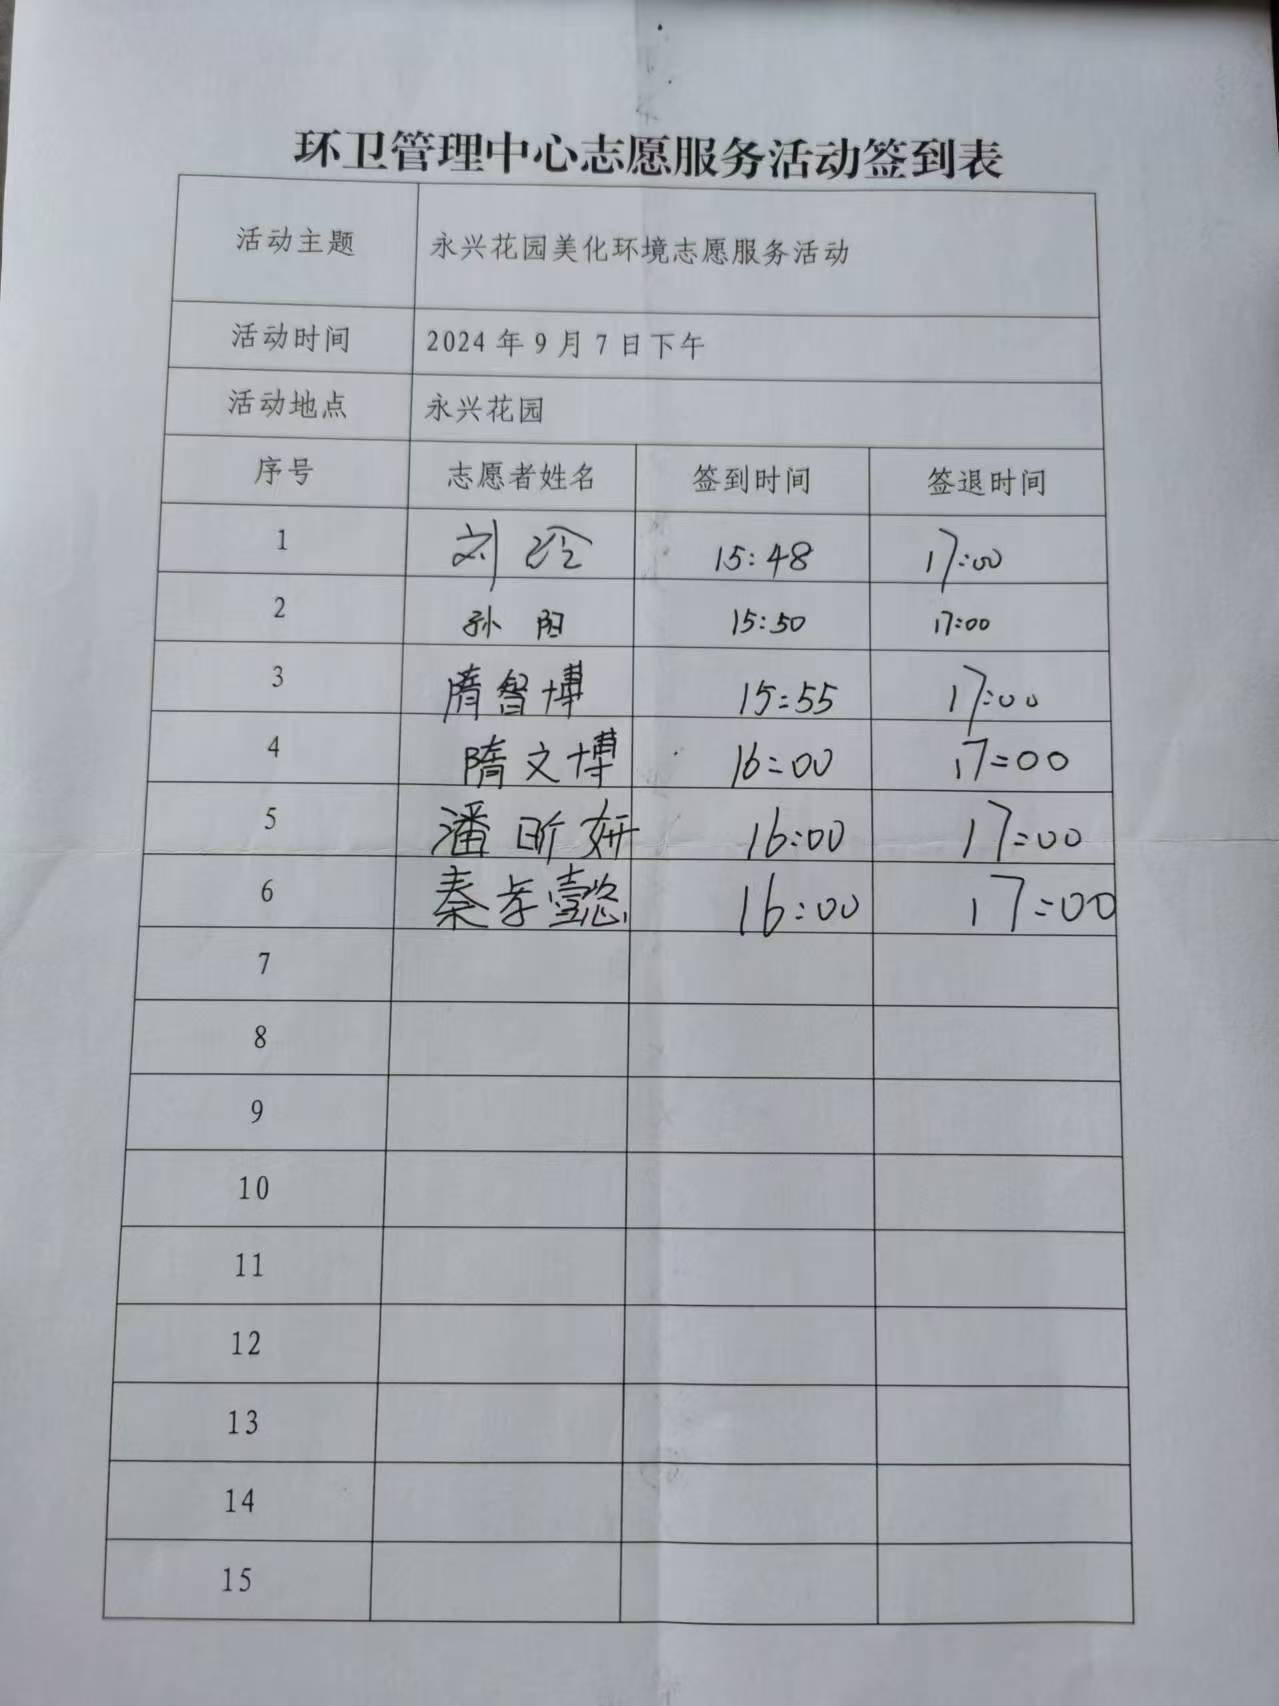 环卫管理中心志愿服务活动签到表
活动主题 永兴花园美化环境志愿服务活动
活动时间 2024年9月7日下午
活动地点 永兴花园
序号 志愿者姓名 签到时间 签退时间
1 刘玲 15:48 17:00
2 孙阳 15:50 17:00
3 隋智博 15:55 17:00
4 隋文博 16:00 17:00
5 潘昕妍 16:00 17:00
6 秦孝懿 16:00 17:00
7
8
9
10
11
12
13
14
15